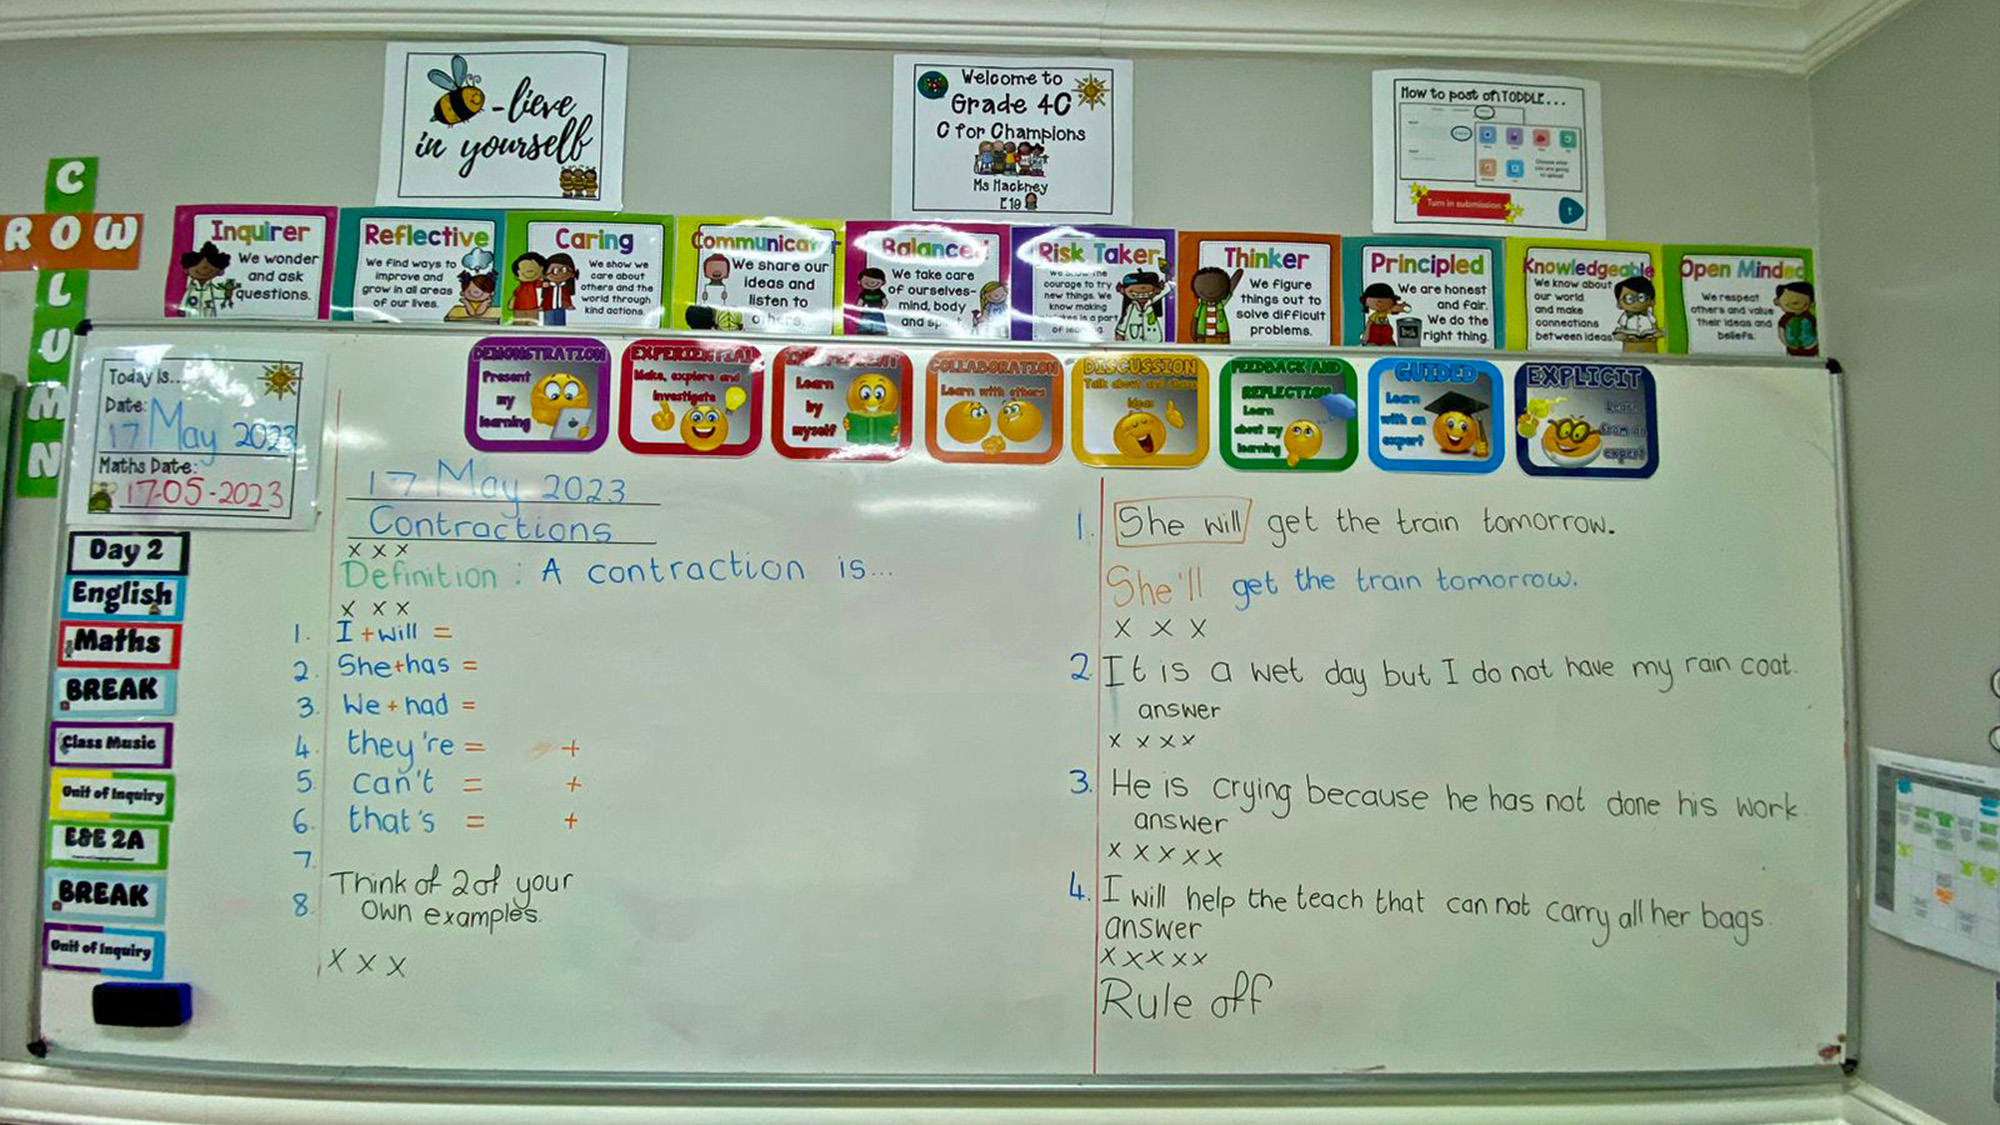 -lieve
in yourself
Welcome to
Grade 4C
C for Champions
Ms Hackney
E19
How to post on TODDLE...
Turn in submission
C
ROW
L
U
M
N
Inquirer
We wonder
and ask
questions.
Reflective
We find ways to
improve and
grow in all areas
of our lives.
Caring
We show we
care about
others and the
world through
kind actions.
Communicat
We share our
ideas and
listen to
others.
Balanced
We take care
of ourselves-
mind, body
and
Risk Taker
We show the
courage to try
new things. We
know making
mistakes is a part
of learning
Thinker
We figure
things out to
solve difficult
problems.
Principled
We are honest
and fair.
We do the
right thing.
Knowledgeable
We know about
our world
and make
connections
between ideas
Open Minded
We respect
others and value
their ideas and
beliefs.
DEMONSTRATION
Present
my
learning
EXPERIENTIAL
Make, explore and
investigate
INDEPENDENT
Learn
by
myself
COLLABORATION
Learn with others
DISCUSSION
Talk about and share
ideas
FEEDBACK AND
REFLECTION
Learn
about my
learning
GUIDED
Learn
with an
expert
EXPLICIT
Learn
from an
expert
Today is...
Date:
17 May 2023
Maths Date:
17-05-2023
Day 2
English
Maths
BREAK
Class Music
Unit of Inquiry
E&E 2A
BREAK
Unit of Inquiry
17 May 2023
Contractions
x x x
Definition: A contraction is...
x x x
1. I + will =
2. She + has =
3. We + had =
4. they're = +
5. can't = +
6. that's = +
7.
Think of 2 of your
8. own examples.
x x x
1. She will get the train tomorrow.
She'll get the train tomorrow.
x x x
2. It is a wet day but I do not have my rain coat.
answer
x x x x
3. He is crying because he has not done his work.
answer
x x x x x
4. I will help the teach that can not carry all her bags.
answer
x x x x x
Rule off